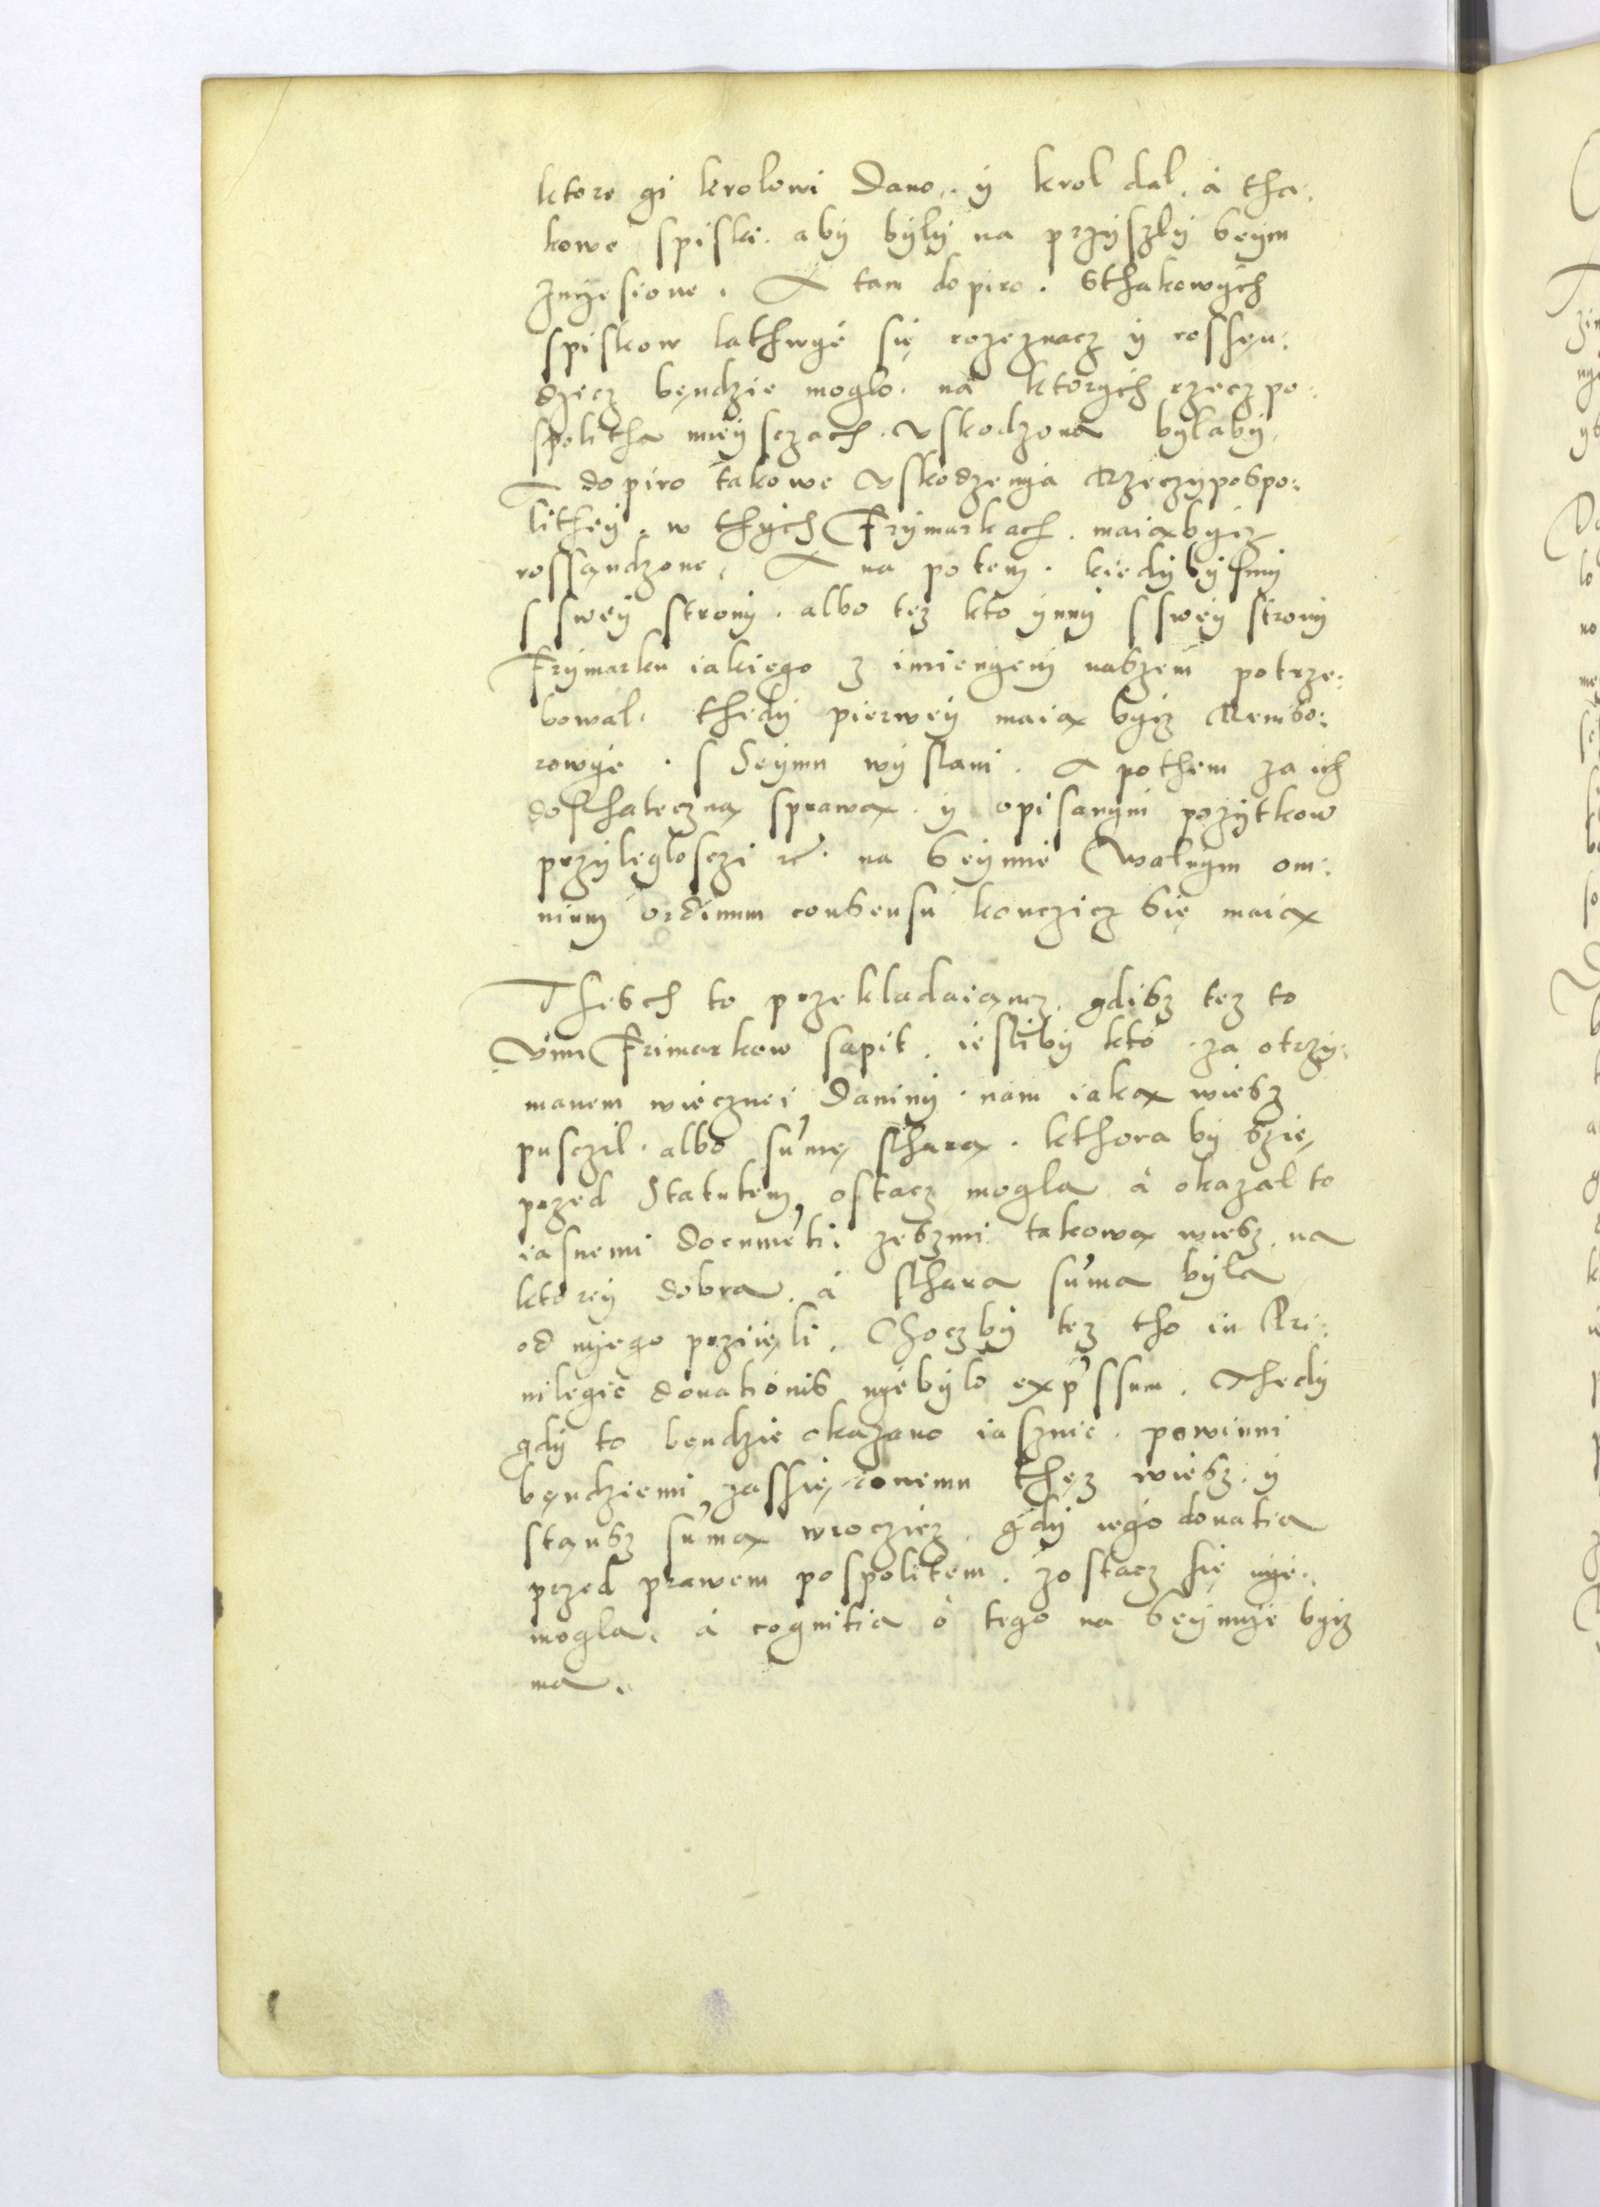 ktore gi krolowi dano. ÿ krol dal. á tha:
kowe spiski. abÿ bÿlÿ na przÿszlÿ Seÿm
znyesione. A tam dopiro. Sthakowÿch
spiskow lathwyé się rozeznacz ÿ rossęn:
dzecz bęndzie moglo. ná ktorÿch rzeczpo:
spolitha mieÿsczach. uskodzona bÿlabÿ
I dopiro takowe uskodzenya Rzeczÿpospo:
lithéÿ. w thÿch Frÿmarkach. maiąbÿcz
rossąndzone. A na potem. kiedÿbÿsmÿ
s swéÿ stronÿ. albo tez kto ÿnnÿ s swéÿ stronÿ
Frÿmarku iakiego z imienyem naszem potrze:
bowál. thedÿ pierwéÿ maią bÿcz Rewiso:
rowyé. s Seÿmu wÿslani. A pothem za ich
dosthateczną sprawą. ÿ opisanym pozÿtkow
przÿlęglosczi etc. na Seÿmié Walnym om:
nium ordinum consensu konczicz się maią
Thesch to przekladaiąncz. gdisz tez to
Vim Frimarkow sapit. iesliby kto za otrzÿ:
manem wiecznei daninÿ. nam iaką wiesz
pusczil. albo sumę stharą. kthora bÿ szię
przed Statutem ostacz mogla á okazal to
iasnemi documeti. zeszmi takową wiesz. na
ktoréÿ dobra. á sthara suma bÿla
od nyego prziięli. Choczbÿ tez tho in Pri:
uilegie donationis nyebÿlo exp'ssum. Thedÿ
gdÿ to bęndzie okazano iasznie. powinni
bęndziemi zassię onemu thęz wiesz. ÿ
stąusz sumą wroczicz. gdÿ iego donatia
przed prawem pospolitem. zostacz się nye.
mogla. á cognitia o tego na Seÿmye bÿcz
ma.